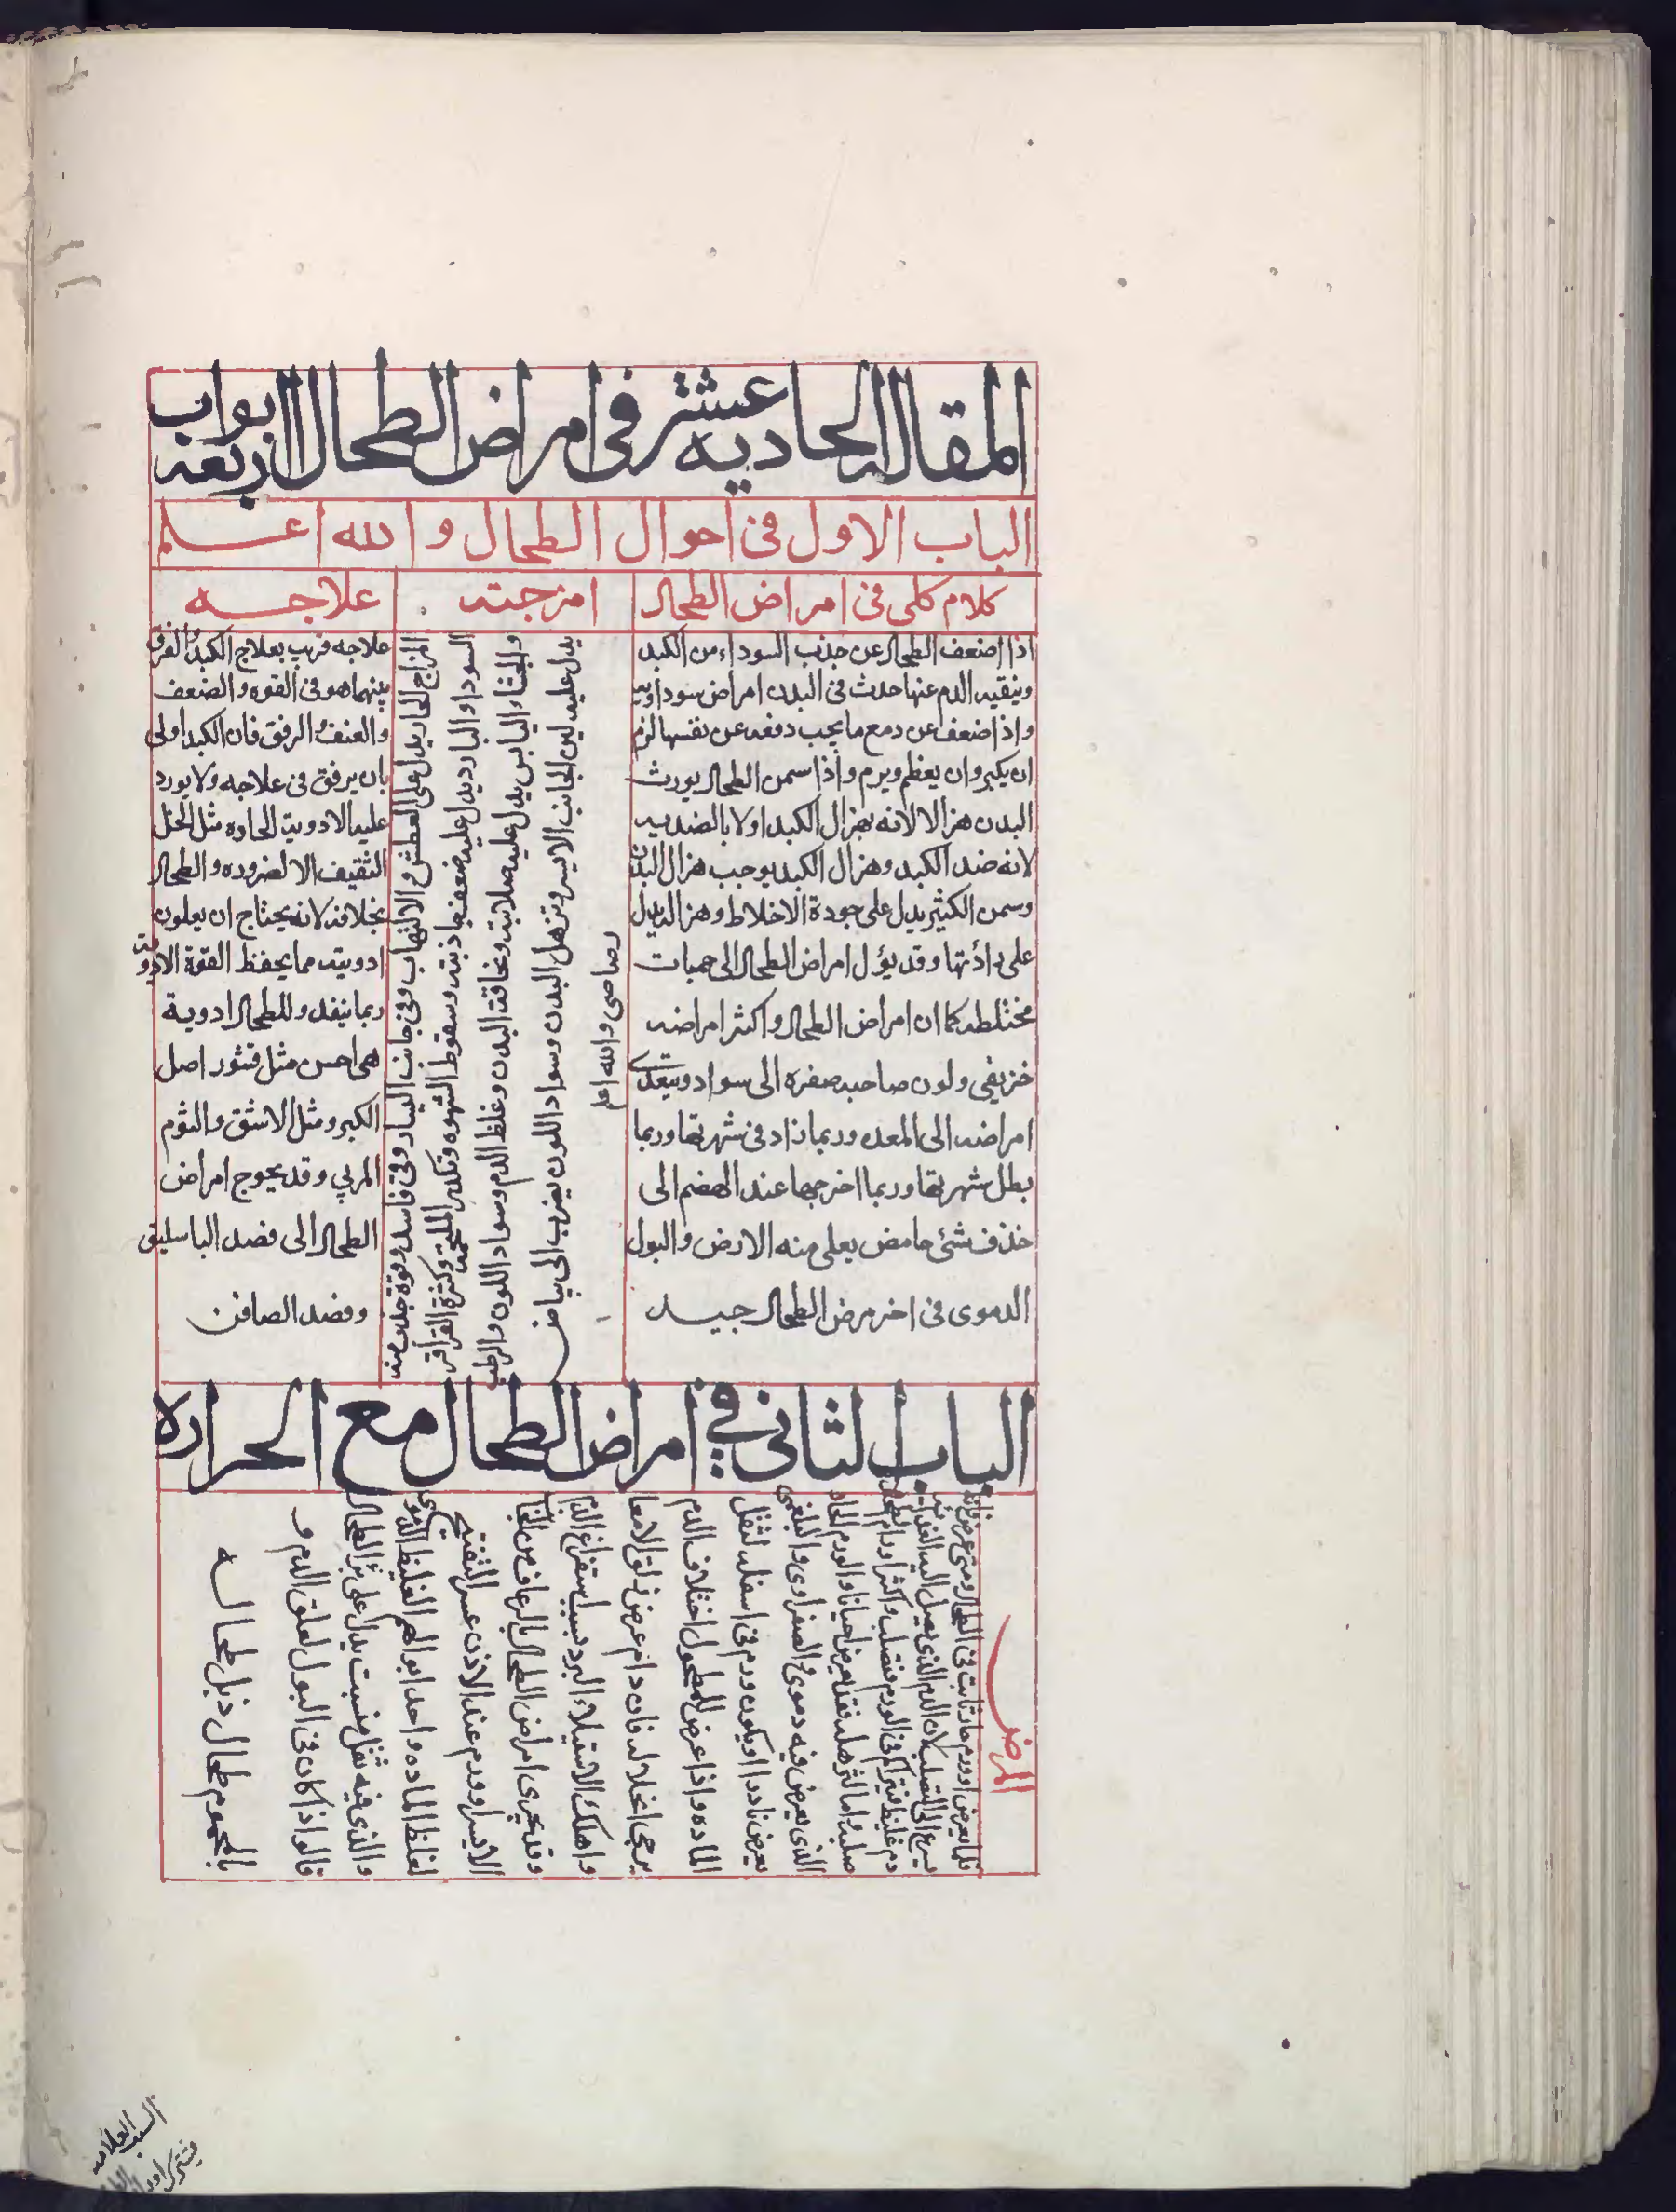 المقالة الحادية عشر في امراض الطحال ابواب اربعة
الباب الاول في احوال الطحال والله اعلم
كلام كلي في امراض الطحال
اذا ضعف الطحال عن جذب السوداء من الكبد
وينقيه الدم عنها حدث في البدن امراض سوداويه
واذا ضعف عن دمع ما يجب دفعه عن نفسها لزم
ان يكبر وان يعظم ويرم واذا سمن الطحال يورث
البدن هزالا لانه يهزال الكبد اولا بالضديه
لانه ضد الكبد وهزال الكبد يوجب هزال البدن
وسمن الكثير يدل على جودة الاخلاط وهزاله يدل
على وقد يؤل امراض الطحال الى حميات
مختلطه كما ان امراض الطحال واكثر امراضه
خريفي ولون صاحبه صفره الى سواد ويتعدى
امراضه الى المعده وربما زاد في شهوتها وربما
بطل شهوتها وربما اخرجها عند الهضم الى
خذف شئ حامض يعلي منه الارض والبول
الدموي في اخر مرض الطحال جيد
امزجته
المزاج الحار يدل على العطش والالتهاب وفي جانب اليسار وفي فاسد وقوة جذب منه
السودا والبارد يدل عليه ضعف جاذبته وسقوط الشهوه وتكدر الملتحمة وكثرة القراقر
والجشاء اليابس يدل عليه صلابته ونحافة البدن وغلظ الدم وسواد اللون والرطب
يدل عليه لين الجانب الايسر وترهل البدن وسواد اللون يضرب الى بياض
رصاصي والله اعلم
علاجه
علاجه قريب بعلاج الكبد والفرق
بينهما هو في القوة والضعف
والعنف والرفق فان الكبد اولى
بان يرفق في علاجه ولا يورد
عليه الادوية الحاده مثل الخل
الثقيف الا لضروره والطحال
بخلافه لانه يحتاج ان يعلون
ادويته مما يحفظ القوة الادوية
ربما تنفد وللطحال ادوية
هي احسن مثل قشور اصل
الكبر ومثل الاشق والثوم
المربي وقد يحوج امراض
الطحال الى فصد الباسليق
وفصد الصافن
الباب الثاني في امراض الطحال مع الحراره
المرض
قلما يعرض اورم حار ثابت في الطحال ومتى عرض فانه
يسرع الى التصلب لان الدم الذي يصل اليه
دم غليظ فيتراكم في الورم فتصلب واكثر اورام الطحال
صلبه واما الترهله فقد يعرض احيانا والورم الحاد
الذي يعرض فيه دموي والصفراوي والبلغمي
يعرض نادرا ويكون ورم في اسفله لثقل
الماده واذا عرض للمطحول اختلاف الدم
يرجى انحلاله فان دام عرض زلق الامعا
واهلك لاستيلاء البرد بسبب استفراغ الدم
وقد يجري امراض الطحال بالرعاف من الجانب
الايسر اورم عند الاذن عسر التفتح
لغلظ الماده واحد ابوالهم الغليظ الدموي
والذي فيه ثفل متشبت يدل على برؤ الطحال
قالوا اذا كان في البول لعلق الدم و
بالمحموم طحال ذبل طحاله